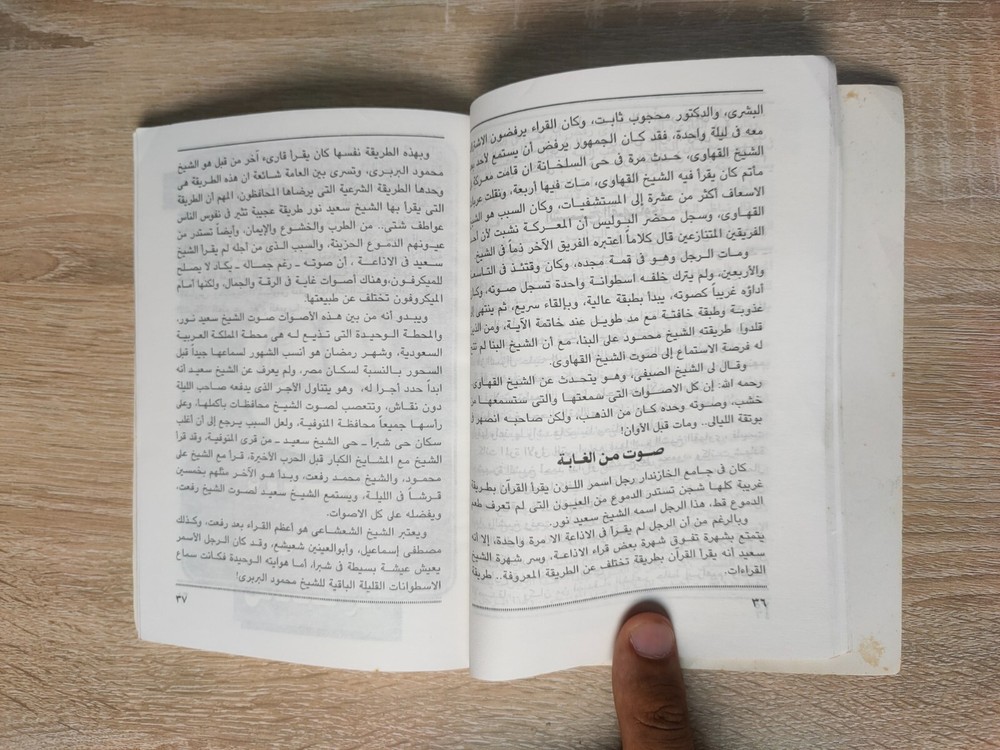 البشرى، والدكتور محجوب ثابت، وكان القراء يرفضون
معه فى ليلة واحدة، فقد كان الجمهور يرفض أن يستمع لأحد
الشيخ القهاوى، حدث مرة فى حى السلخانة ان قامت معركة
مأتم كان يقرأ فيه الشيخ القهاوى، مات فيها أربعة، ونقلت
الاسعاف أكثر من عشرة إلى المستشفيات، وكان السبب هو
القهاوى، وسجل محضر البوليس أن المعركة نشبت لأن
الفريقين المتنازعين قال كلاماً اعتبره الفريق الآخر ذماً فى الشيخ
ومات الرجل وهو فى قمة مجده، وكان وقتئذ فى
والأربعين، ولم يترك خلفه اسطوانة واحدة تسجل صوته،
أداؤه غريباً كصوته، يبدأ بطبقة عالية، وبإلقاء سريع، ثم ينتهى
عذوبة وطبقة خافتة مع مد طويل عند خاتمة الآية، ومن
قلدوا طريقته الشيخ محمود على البنا، مع أن الشيخ البنا لم
له فرصة الاستماع إلى صوت الشيخ القهاوى.
وقال لى الشيخ الصيفى، وهو يتحدث عن الشيخ القهاوى
رحمه الله: إن كل الاصوات التى سمعتها والتى ستسمعها
خشب، وصوته وحده كان من الذهب، ولكن صاحبه انصهر
بوتقة الليالى.. ومات قبل الأوان!
صوت من الغابة
كان فى جامع الخازندار رجل اسمر اللون يقرأ القرآن
غريبة كلها شجن تستدر الدموع من العيون التى لم تعرف طعم
الدموع قط، هذا الرجل اسمه الشيخ سعيد نور.
وبالرغم من أن الرجل لم يقرأ فى الاذاعة الا مرة واحدة، إلا أنه
يتمتع بشهرة تفوق شهرة بعض قراء الاذاعة، وسر شهرة الشيخ
سعيد أنه يقرأ القرآن بطريقة تختلف عن الطريقة المعروفة.. طريقة
القراءات.
٣٦
وبهذه الطريقة نفسها كان يقرأ قارىء آخر من قبل هو الشيخ
محمود البربرى، وتسرى بين العامة شائعة ان هذه الطريقة هى
وحدها الطريقة الشرعية التى يرضاها المحافظون، المهم أن الطريقة
التى يقرأ بها الشيخ سعيد نور طريقة عجيبة تثير فى نفوس الناس
عواطف شتى.. من الطرب والخشوع والإيمان، وأيضاً تستدر من
عيونهم الدموع الحزينة، والسبب الذى من أجله لم يقرأ الشيخ
سعيد فى الاذاعة ، أن صوته ـ رغم جماله ـ يكاد لا يصلح
للميكرفون، وهناك أصوات غاية فى الرقة والجمال، ولكنها أمام
الميكروفون تختلف عن طبيعتها.
ويبدو أنه من بين هذه الأصوات صوت الشيخ سعيد نور،
والمحطة الوحيدة التى تذيع له هى محطة الملكة العربية
السعودية، وشهر رمضان هو أنسب الشهور لسماعها جيداً قبل
السحور بالنسبة لسكان مصر، ولم يعرف عن الشيخ سعيد أنه
أبداً حدد أجراً له، وهو يتناول الأجر الذى يدفعه صاحب الليلة
دون نقاش، وتتعصب لصوت الشيخ محافظات بأكملها، وعلى
رأسها جميعاً محافظة المنوفية، ولعل السبب يرجع إلى أن أغلب
سكان حى شبرا ـ حى الشيخ سعيد ـ من قرى المنوفية، وقد قرأ
الشيخ مع المشايخ الكبار قبل الحرب الأخيرة، قرأ مع الشيخ على
محمود، والشيخ محمد رفعت، وبدأ هو الآخر مثلهم بخمسين
قرشاً فى الليلة، ويستمع الشيخ سعيد لصوت الشيخ رفعت،
ويفضله على كل الاصوات.
ويعتبر الشيخ الشعشاعى هو أعظم القراء بعد رفعت، وكذلك
مصطفى إسماعيل، وأبوالعينين شعيشع، وقد كان الرجل الأسمر
يعيش عيشة بسيطة فى شبرا، أما هوايته الوحيدة فكانت سماع
الاسطوانات القليلة الباقية للشيخ محمود البربرى!
٣٧